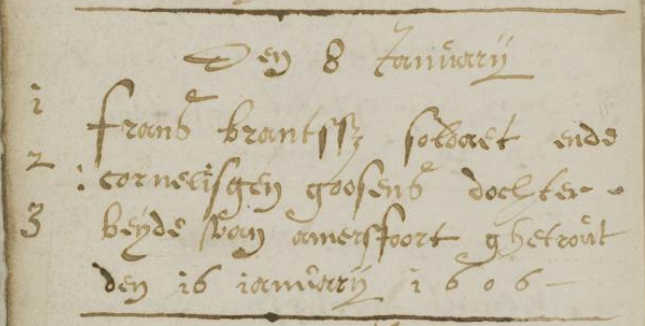 Den 8 Januarij
1 frans brantssz soldaet ende
2 : cornelisgen goosens dochter -
3 beyde van amersfoort ghetrout
den 16 januarij 1606 -